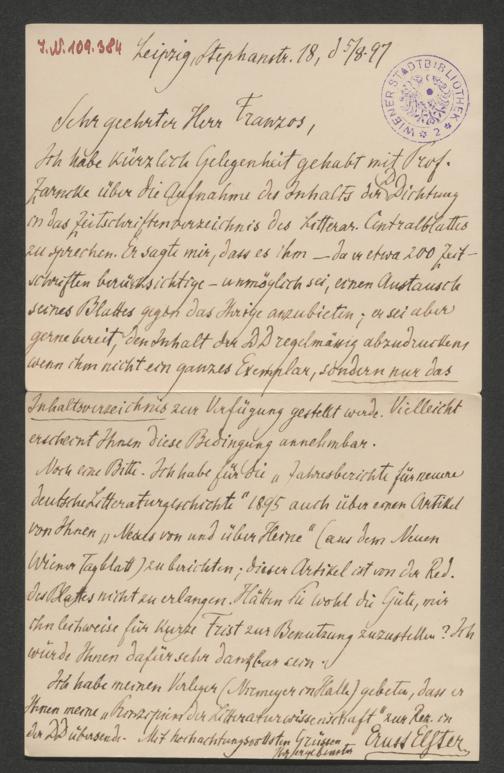 J.N. 109.384
Leipzig, Stephanstr. 18, d 5/8.97
WIENER STADTBIBLIOTHEK 2
Sehr geehrter Herr Franzos,
Ich habe kürzlich Gelegenheit gehabt mit Prof.
Zarncke über die Aufnahme des Inhalts der D Dichtung
in das Zeitschriftenverzeichnis des Litterar. Centralblattes
zu sprechen. Er sagte mir, dass es ihm – da er etwa 200 Zeit-
schriften berücksichtige – unmöglich sei, einen Austausch
seines Blattes gegen das Ihrige anzubieten; er sei aber
gerne bereit, den Inhalt der DD regelmässig abzudrucken,
wenn ihm nicht ein ganzes Exemplar, sondern nur das
Inhaltsverzeichnis zur Verfügung gestellt werde. Vielleicht
erscheint Ihnen diese Bedingung annehmbar.
Noch eine Bitte. Ich habe für die „Jahresberichte für neuere
deutsche Litteraturgeschichte" 1895 auch über einen Artikel
von Ihnen „Neues von und über Heine" (aus dem Neuen
Wiener Tagblatt) zu berichten; dieser Artikel ist von der Red.
des Blattes nicht zu erlangen. Hätten Sie wohl die Güte, mir
ihn leihweise für kurze Frist zur Benutzung zuzustellen? Ich
würde Ihnen dafür sehr dankbar sein.
Ich habe meinen Verleger (Niemeyer in Halle) gebeten, dass er
Ihnen meine „Prinzipien der Litteraturwissenschaft" zur Rez. in
der DD übersende. Mit hochachtungsvollsten Grüssen
Ihr ergebenster
Ernst Elster